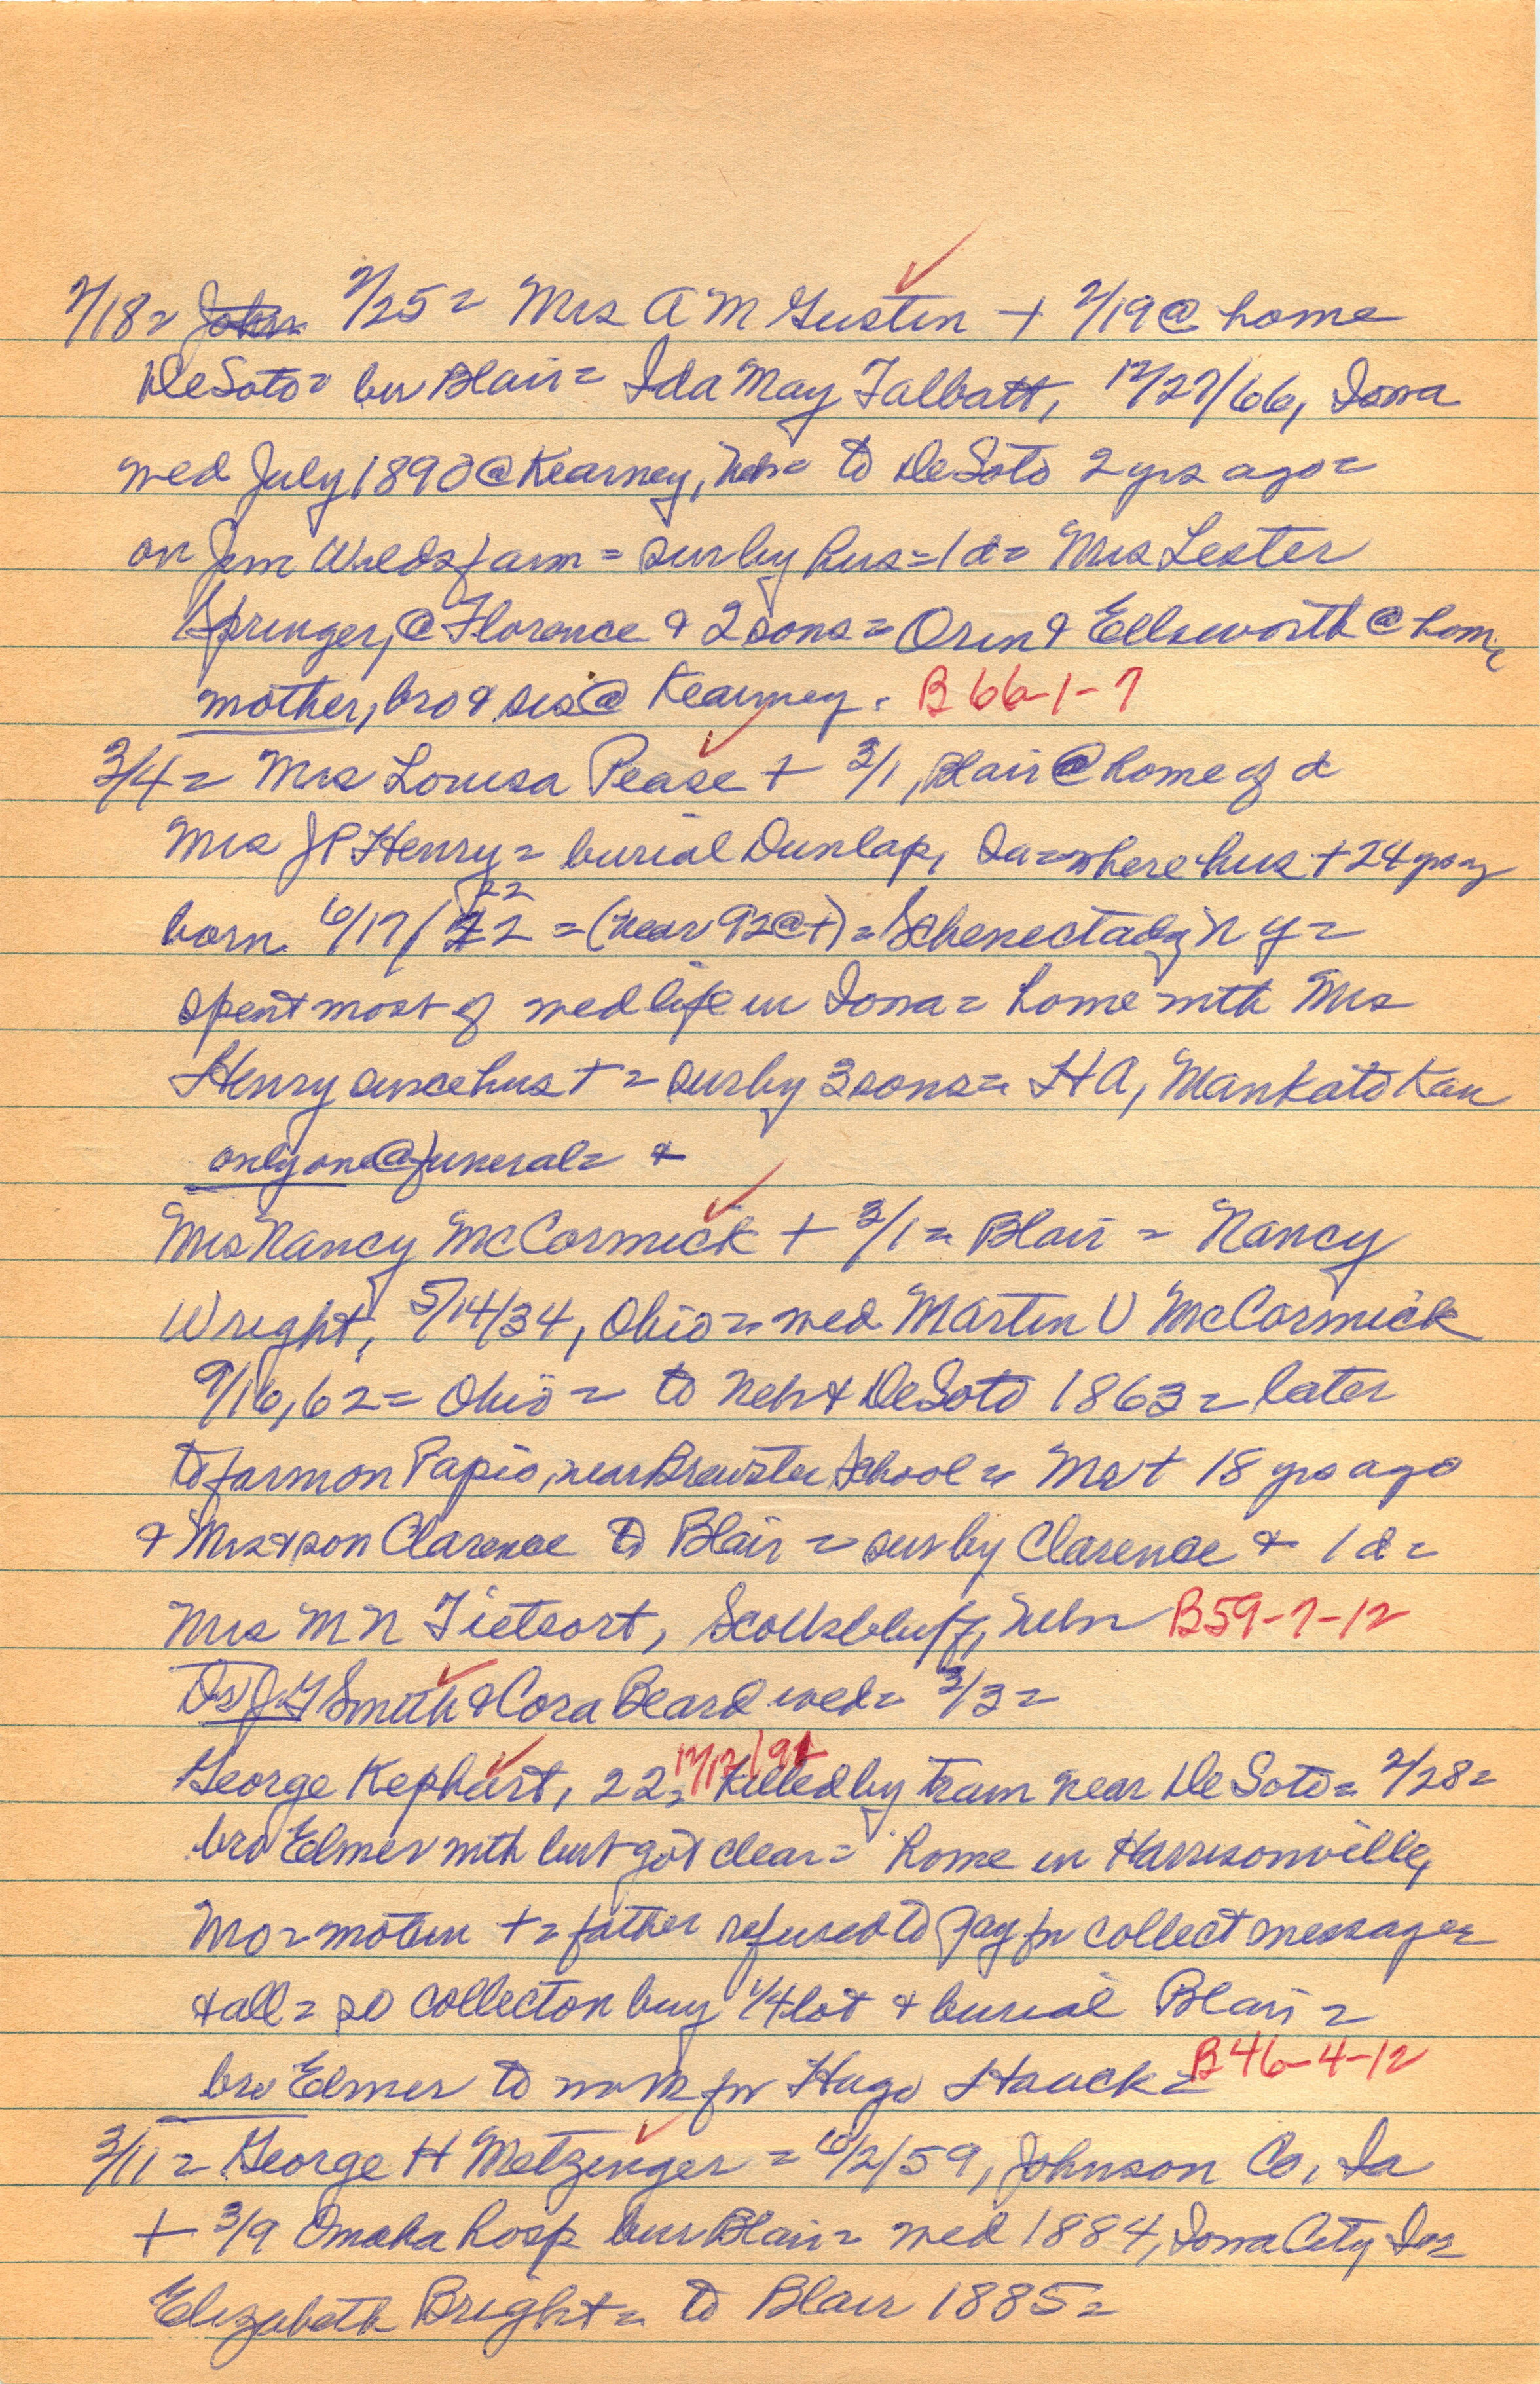 2/18 = John 2/25 = Mrs A M Gustin + 2/19 @ home
DeSoto = bur Blair = Ida May Talbatt, 12/27/66, Iowa
wed July 1890 @ Kearney, Neb = to DeSoto 2 yrs ago =
on Jim Wilds farm = sur by hus = 1 d = Mrs Lester
Springer, @ Florence & 2 sons = Orin & Ellsworth @ home
mother, bro & sis @ Kearney. B 66-1-7
3/4 = Mrs Louisa Pease + 3/1, Blair @ home of d
Mrs J P Henry = burial Dunlap, Ia = where hus + 24 yrs ag
born 6/17/22 22 = (near 92 @ +) = Schenectady N Y =
spent most of wed life in Iowa = home with Mrs
Henry since hus + = sur by 3 sons = H A, Mankato Kan
only one @ funeral = &
Mrs Nancy McCormick + 3/1 = Blair = Nancy
Wright, 5/14/34, Ohio = wed Martin V McCormick
9/16, 62 = Ohio = to Neb & DeSoto 1863 = later
to farm on Papio, near Brewster School = Mr + 18 yrs ago
& Mrs & son Clarence to Blair = sur by Clarence & 1 d =
Mrs M N Tietsort, Scottsbluff, Nebr B59-7-12
Dr J G Smith & Cora Beard wed = 3/3 =
George Kephart, 22, 12/12/91 killed by train near De Soto = 2/28 =
bro Elmer with but got clear = home in Harrisonville,
Mo = mother + = father refused to pay for collect message
& all = so collect on buy 1/4 lot & burial Blair =
bro Elmer to work for Hugo Haack = B 46-4-12
3/11 = George H Metzinger = 10/2/59, Johnson Co, Ia
+ 3/9 Omaha hosp bur Blair = wed 1884, Iowa City Ia =
Elizabeth Bright = to Blair 1885 =